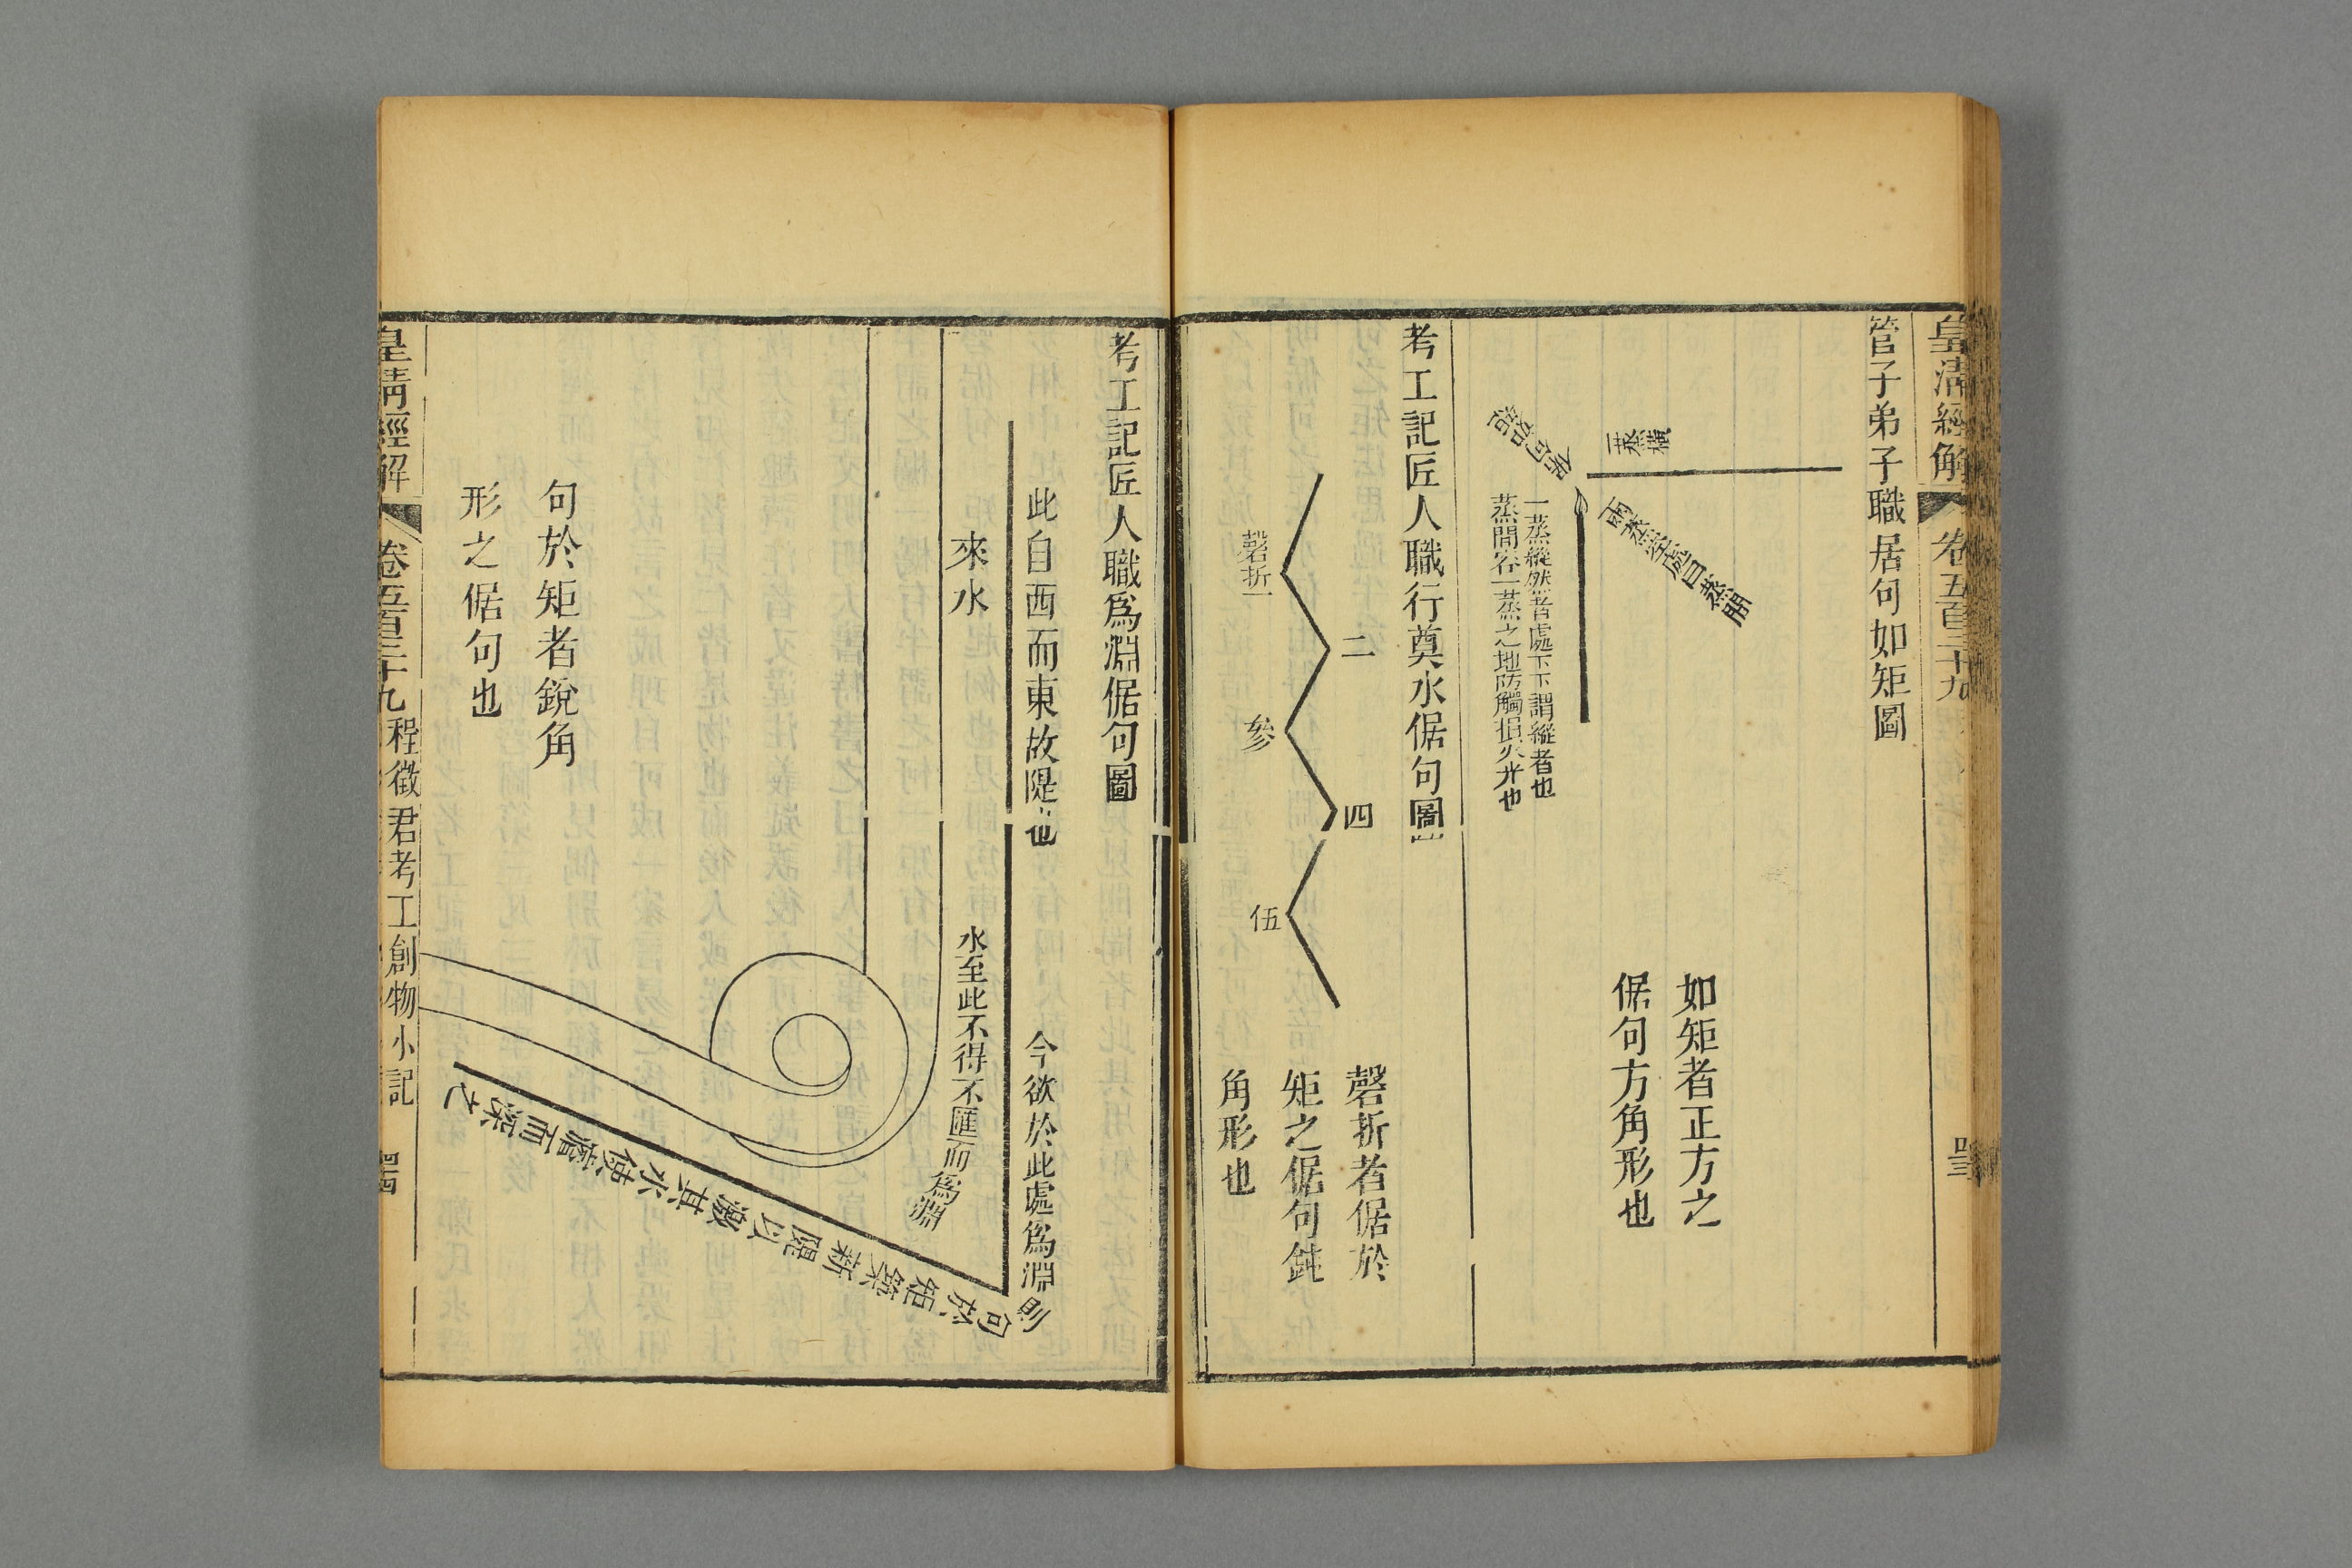 皇清經解
卷五百三十九
管子弟子職居句如矩圖
橫
一蒸
兩蒸空處曰蒸閒
一蒸縱然者處下下謂縱者也
蒸閒容一蒸之地防觸損火光也
如矩者正方之
倨句方角形也
考工記匠人職行奠水倨句圖
磬折一
二
參
四
伍
磬折者倨於
矩之倨句鈍
角形也
考工記匠人職爲淵倨句圖
此自西而東故隄也
今欲於此處爲淵則
句於矩築新隄以激其水使瀦而深之
來水
水至此不得不匯而爲淵
句於矩者銳角
形之倨句也
皇清經解
卷五百三十九
程徵君考工創物小記